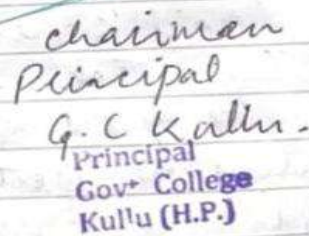 chairman
Principal
G. C Kullu.
Principal
Govt College
Kullu (H.P.)